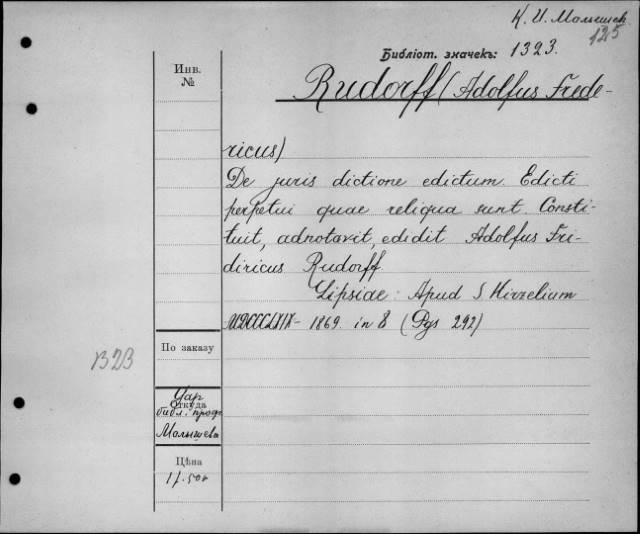 К. И. Малышев.
125
Библіот. значекъ: 1323.
Инв.
№
Rudorff (Adolfus Frede-
ricus)
De juris dictione edictum. Edicti
perpetui quae reliqua sunt. Consti-
tuit, adnotavit, edidit Adolfus Fri-
diricus Rudorff
Lipsiae: Apud S Hirzelium
MDCCCLXIX - 1869. in 8 (Pgs 292)
1323
По заказу
Дар
Откуда
библ. проф.
Малышева
Цѣна